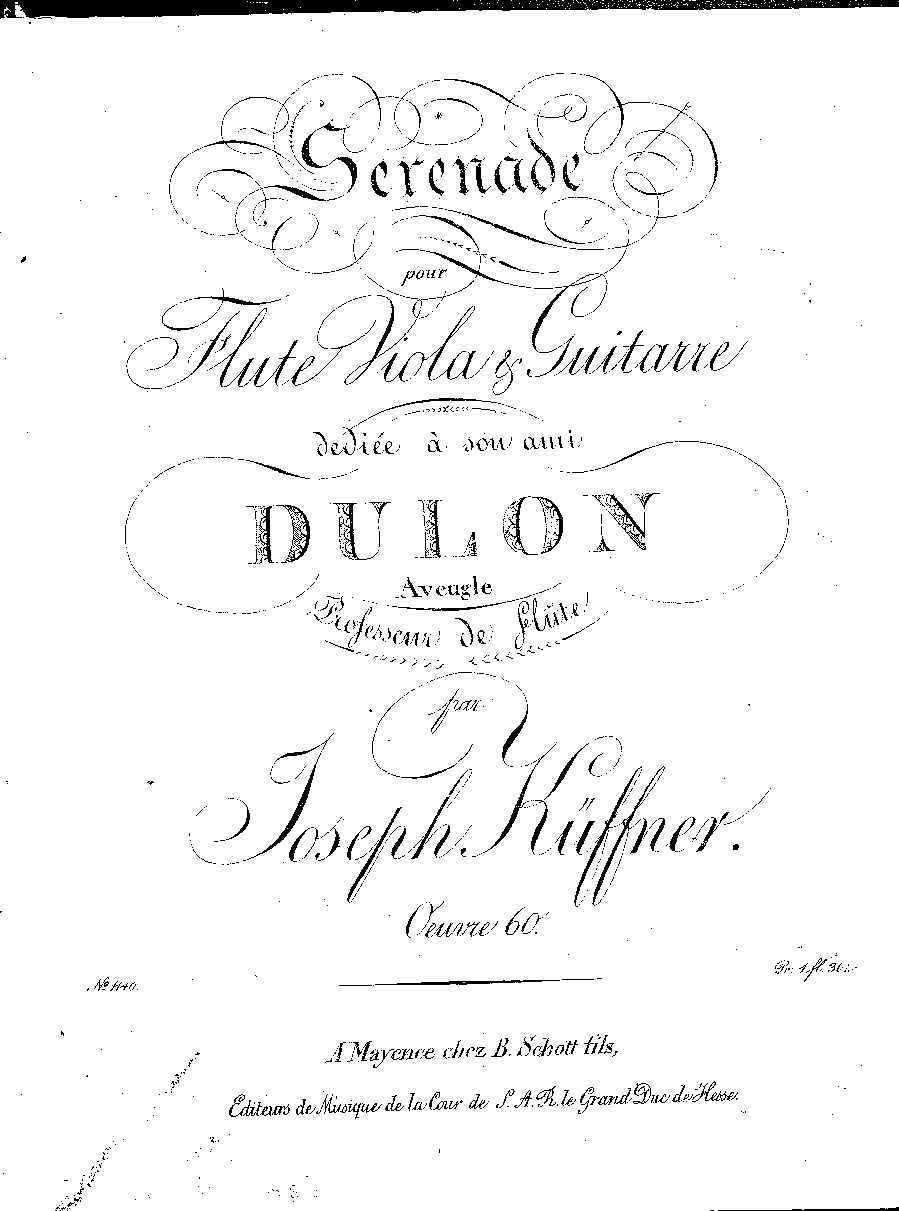 Serenade
pour
Flute Viola & Guitarre
dediée à son ami
DULON
Aveugle
Professeur de flûte
par
Joseph Küffner.
Oeuvre 60.
Pr. 1. fl. 30
No.
A Mayence chez B. Schott fils,
Editeurs de Musique de la Cour de S. A. R. le Grand Duc de Hesse.